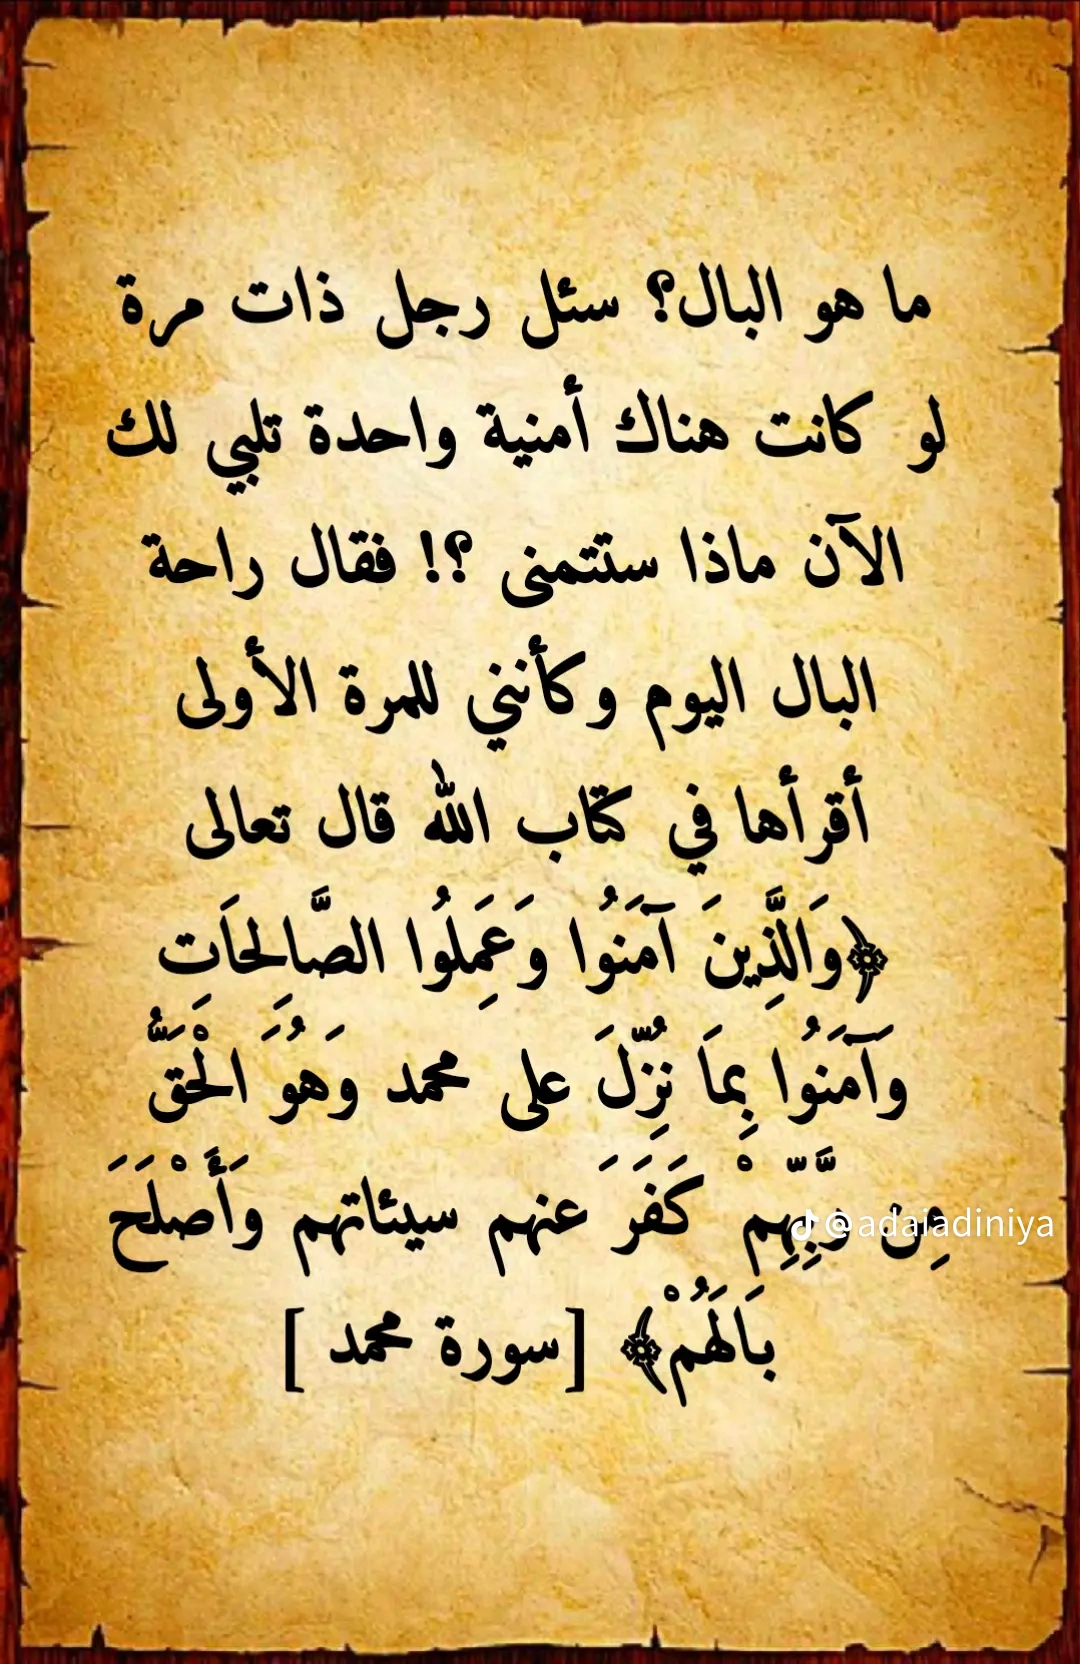 ما هو البال؟ سئل رجل ذات مرة
لو كانت هناك أمنية واحدة تلبي لك
الآن ماذا ستتمنى ؟! فقال راحة
البال اليوم وكأنني للمرة الأولى
أقرأها في كتاب الله قال تعالى
﴿وَالَّذِينَ آمَنُوا وَعَمِلُوا الصَّالِحَاتِ
وَآمَنُوا بِمَا نُزِّلَ على محمد وَهُوَ الْحَقُّ
مِن رَّبِّهِمْ كَفَرَ عنهم سيئاتهم وَأَصْلَحَ
بَالَهُمْ﴾ [سورة محمد ]
@adaiadiniya